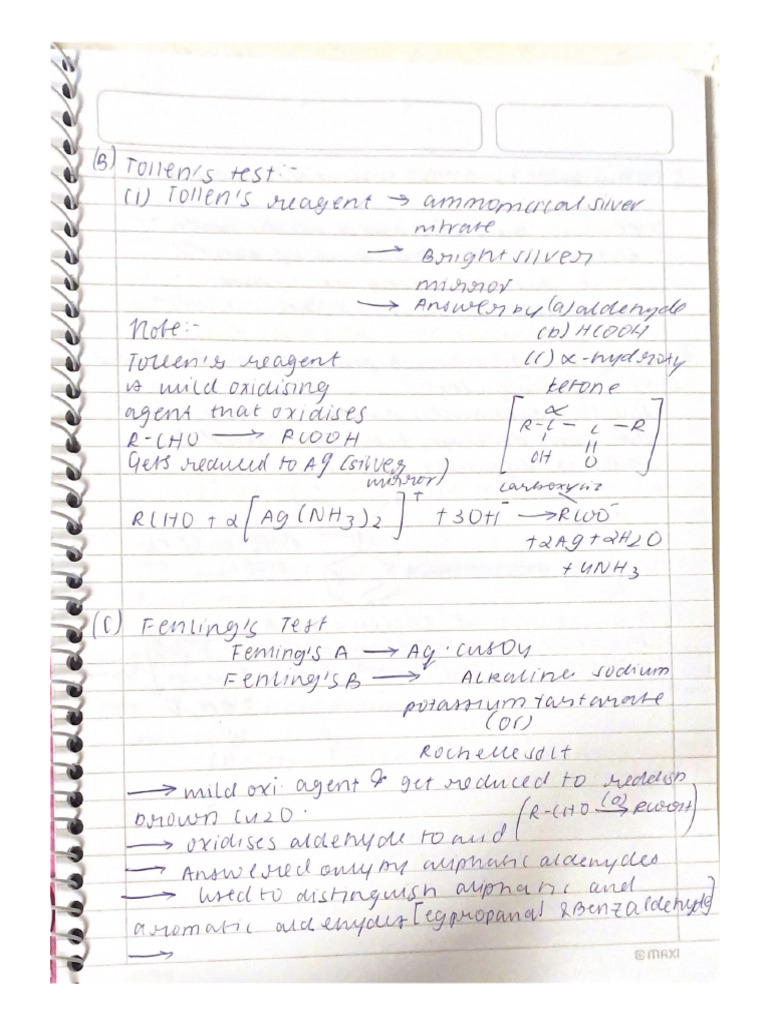 (B) Tollen's test:-
(i) Tollen's reagent → ammomcical silver
nitrate
→ Bright silver
mirror
→ Answer by (a) aldehyde
Note:- (b) HCOOH
Tollen's reagent (c) α-hydroxy
is mild oxidising ketone
agent that oxidises
R-CHO → RCOOH
Gets reduced to Ag (silver
mirror)
[R-C-C-R]
α
OH O
carboxylic
RCHO + 2[Ag(NH3)2]+ + 3OH- → RCOO-
+2Ag+2H2O
+4NH3
(C) Fehling's Test
Fehling's A → Aq. CuSO4
Fehling's B → Alkaline sodium
potassium tartarate
(or)
Rochelle salt
→ mild oxi. agent & get reduced to reddish
brown Cu2O.
→ oxidises aldehyde to acid (R-CHO (O)→ RCOOH)
→ Answered only by aliphatic aldehydes
→ Used to distinguish aliphatic and
aromatic aldehydes [eg propanal & Benzaldehyde]
→
MAXI